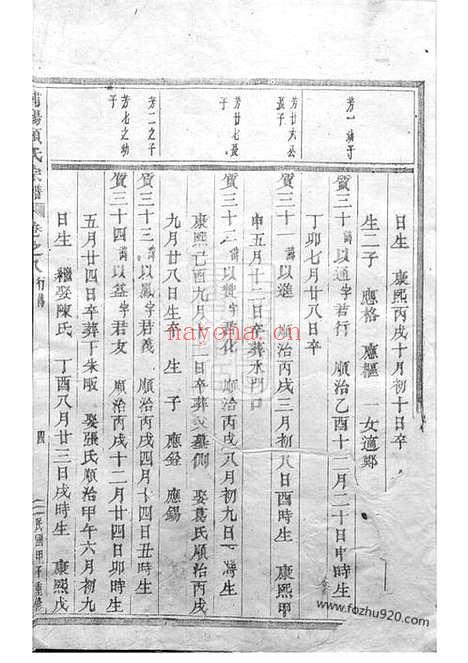 日生　康熙丙戌十月初十日卒
生二子　應格　應樞　一女適鄭
芳一靖子
質三十諱以通字君行　順治乙酉十二月二十日申時生
丁卯七月廿八日卒
芳廿六公長子
質三十一諱以進　順治丙戌三月初八日酉時生　康熙甲
申五月十二日卒葬水門口
芳廿七長子
質三十三諱以贊字君化　順治丙戌八月初九日時生
康熙己酉九月二日卒葬父墓側　娶葛氏順治丙戌
九月廿八日生卒　生子　應銓　應錫
芳二之子
質三十三諱以鳳字君義　順治丙戌四月十四日丑時生
芳七之幼子
質三十四諱以基字君友　順治丙戌十二月廿四日卯時生
五月廿四日卒葬丁朱畈　娶張氏順治甲午六月初九
日生　繼娶陳氏　丁酉八月廿三日戌時生　康熙戊
浦陽頭氏宗譜　卷之八　行傳　四　民國甲子重修
nayona.cn
www.fozhu920.com